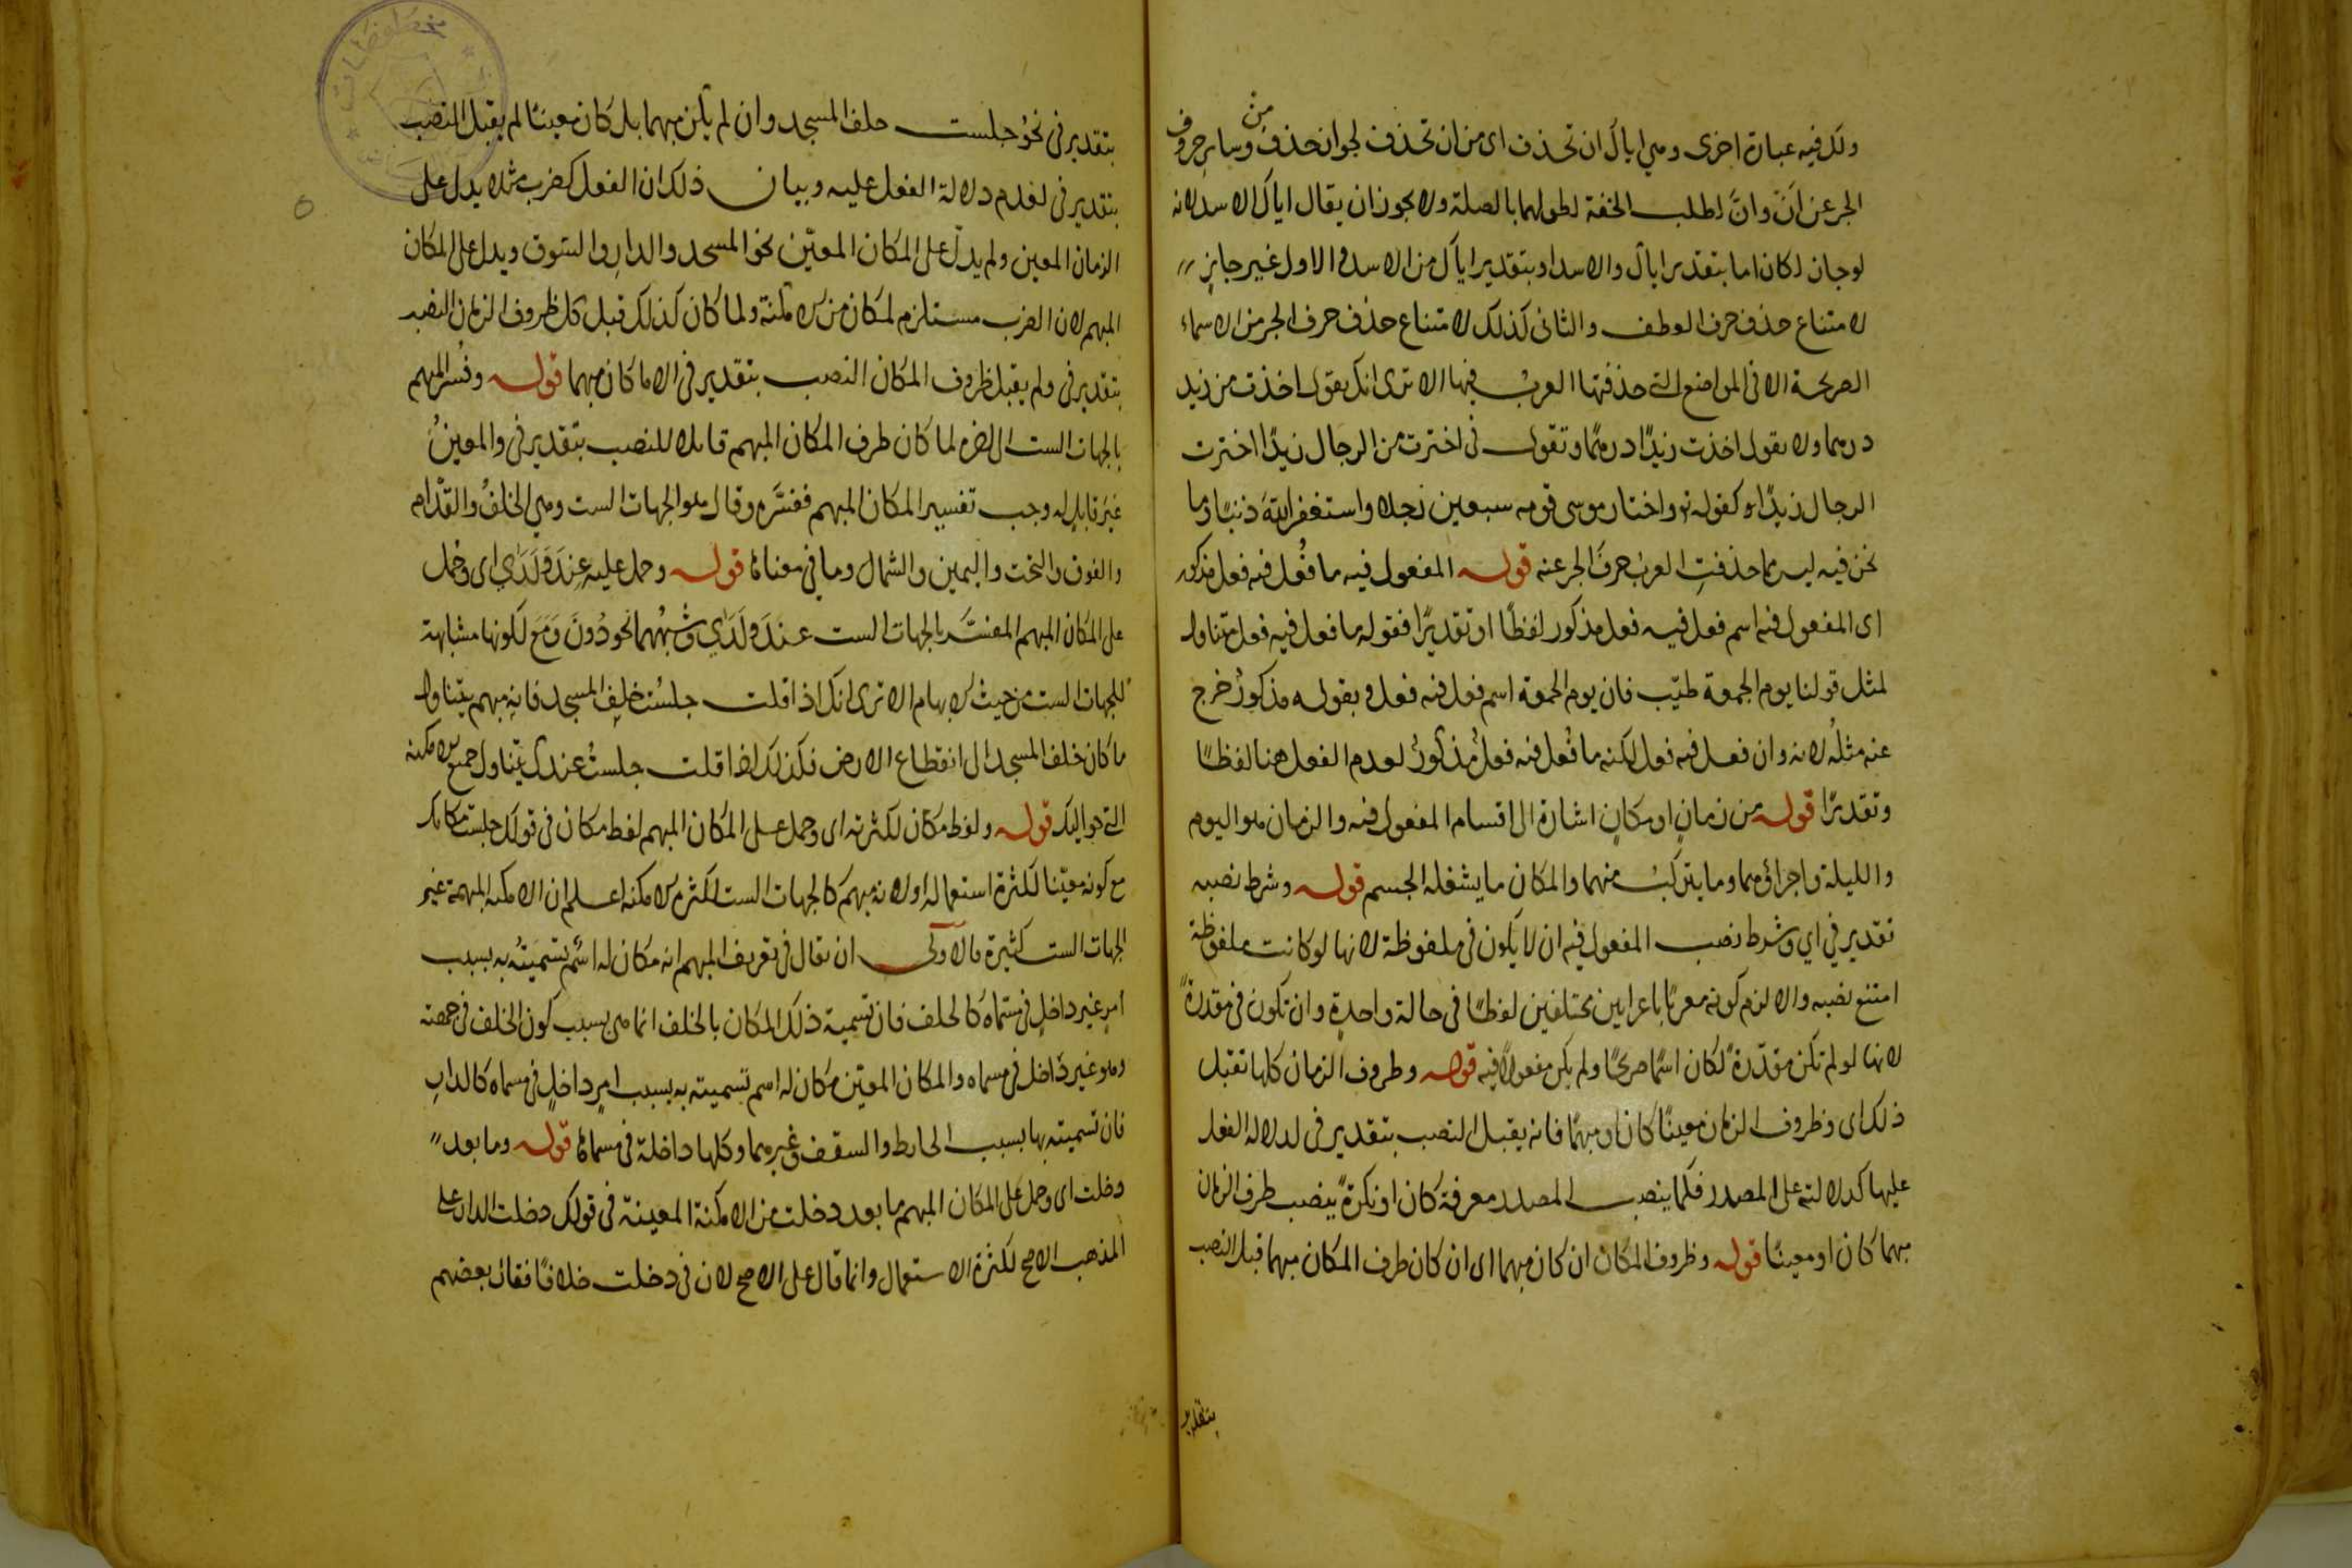 ولك فيه عبارة اخرى وهي اياك ان تحذف اى من ان تحذف لجواز حذف من وساير حروف
الجر عن اَنْ وانَّ لطلب الخفة لطولهما بالصلة ولا يجوز ان يقال اياك الاسد لانه
لو جاز لكان اما بتقدير اياك والاسد او بتقدير اياك من الاسد والاول غير جايز
لامتناع حذف حرف العطف والثانى كذلك لامتناع حذف حرف الجر من الاسماء
الصريحة الا فى المواضع التى حذفتها العرب فيها الا ترى انك يقول اخذت من زيد
درهما ولا يقول اخذت زيدًا درهمًا وتقول فى اخترت من الرجال زيدًا اخترت
الرجال زيدًا كقوله تع واختار موسى قومه سبعين رجلا واستغفر الله ذنبًا وما
نحن فيه ليس مما حذفتِ العرب حرفَ الجر عنه قوله المفعول فيه ما فُعل فيه فعل مذكور
اى المفعول فيه اسم فعل فيه فعل مذكور لفظًا او تقديرًا فقوله ما فعل فيه فعل متناول
لمثل قولنا يوم الجمعة طيّب فان يوم الجمعة اسم فعل فيه فعل وبقوله مذكورٌ خرج
عنه مثلُه لانه وان فعل فيه فعل لكنه ما فُعل فيه فعلٌ مذكورٌ لعدم الفعل هنا لفظًا
وتقديرًا قوله من زمانٍ او مكانٍ اشارة الى اقسام المفعول فيه والزمان هو اليوم
والليلة واجزاؤهما وما يتركبُ منهما والمكان ما يشغله الجسم قوله وشرط نصبه
تقدير في اي وشرط نصب المفعول فيه ان لا يكون فى ملفوظة لانها لو كانت ملفوظة
امتنع نصبه والا لزم كونه معربًا باعرابين مختلفين لفظًا فى حالة واحدةٍ وان تكون فى مقدرةً
لانها لو لم تكن مقدّرةً لكان اسمًا صريحًا ولم يكن مفعولاً فيه قوله وظروف الزمان كلها تقبل
ذلك اى وظروف الزمان معينًا كان او مبهمًا فانه يقبل النصب بتقدير فى لدلالة الفعل
عليها كدلالته على المصدر فكما ينصب المصدر معرفة كان او نكرةً ينصب ظرف الزمان
مبهما كان او معينًا قوله وظروف المكان ان كان مبهما اى ان كان ظرف المكان مبهما قبل النصب
بتقدير
بتقدير فى نحو جلست خلف المسجد وان لم يكن مبهما بل كان معينًا لم يقبل النصب
بتقدير فى لعدم دلالة الفعل عليه وبيان ذلك ان الفعل كضرب مثلا يدل على
الزمان المعين ولم يدلّ على المكان المعيّن نحو المسجد والدار والسوق ويدل على المكان
المبهم لان الضرب مستلزم لمكان من الامكنة ولما كان كذلك قبل كل ظروف الزمان النصب
بتقدير فى ولم يقبل ظروف المكان النصب بتقدير فى الا ما كان مبهما قوله وفُسّر المبهم
بالجهات الست الى اخره لما كان ظرف المكان المبهم قابلا للنصب بتقدير فى والمعينُ
غيرَ قابلٍ له وجب تفسير المكان المبهم ففسَّره وقال هو الجهات الست وهي الخلفُ والقدّام
والفوق والتحت واليمين والشمال وما في معناها قوله وحمل عليه عِندَ ولَدَي اى وحمل
على المكان المبهم المفسَّر بالجهات الست عندَ ولَدَي وشبهُهما نحو دُونَ وَمَعَ لكونها مشابهة
للجهات الست من حيث الابهام الا ترى انك اذا قلت جلستُ خلف المسجد فانه مبهم يتناول
ما كان خلف المسجد الى انقطاع الارض فكذلك اذا قلت جلستُ عندك يتناول جميع الامكنة
التى حواليك قوله ولفظ مكان لكثرته اى وحمل على المكان المبهم لفظ مكان فى قولك جلستُ مكانك
مع كونه معيّنا لكثرة استعماله او لانه مبهم كالجهات الست لكثرة الامكنة اعلم ان الامكنة المبهمة غير
الجهات الست كثيرة فالاَولى ان يقال فى تعريف المبهم انه مكان له اسْم تسميتُه به بسبب
امرٍ غير داخلٍ فى مسمّاه كالخلف فان تسمية ذلك المكان بالخلف انما هى بسبب كون الخلف فى جهته
وهو غير داخل فى مسماه والمكان المعيّن مكان له اسم تسميته به بسبب امرٍ داخلٍ فى مسماه كالدارِ
فان تسميته بها بسبب الحايط والسقف وغيرهما وكلها داخلة فى مسماها قوله وما بعد
دخلت اى وحمل على المكان المبهم ما بعد دخلت من الامكنة المعينة فى قولك دخلت الدار على
المذهب الاصح لكثرة الاستعمال وانما قال على الاصح لان فى دخلت خلافًا فقال بعضهم